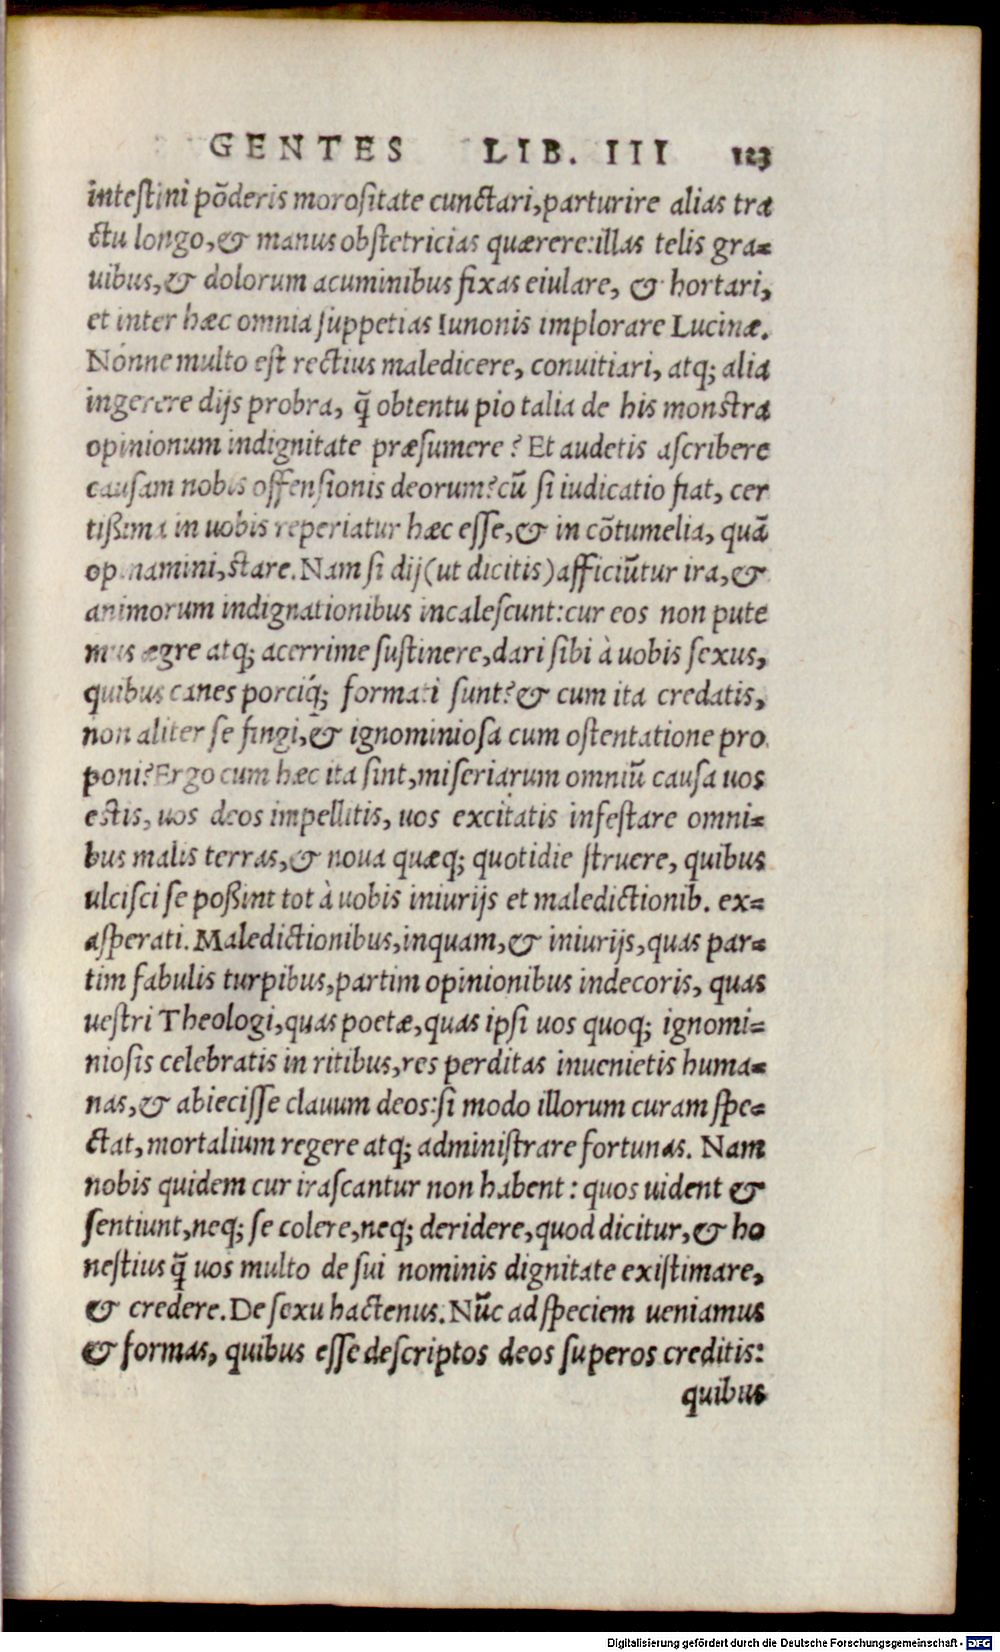 GENTES LIB. III 123
intestini põderis morositate cunctari,parturire alias tra
ctu longo,& manus obstetricias quærere:illas telis gra=
uibus,& dolorum acuminibus fixas eiulare, & hortari,
et inter hæc omnia suppetias Iunonis implorare Lucinæ.
Nónne multo est rectius maledicere, conuitiari, atq; alia
ingerere dijs probra, q̃ obtentu pio talia de his monstra
opinionum indignitate præsumere? Et audetis ascribere
causam nobis offensionis deorum?cũ si iudicatio fiat, cer
tißima in uobis reperiatur hæc esse,& in cõtumelia, quã
opinamini,stare.Nam si dij(ut dicitis)afficiũtur ira,&
animorum indignationibus incalescunt:cur eos non pute
mus ægre atq; acerrime sustinere,dari sibi à uobis sexus,
quibus canes porciq́; formati sunt?& cum ita credatis,
non aliter se fingi,& ignominiosa cum ostentatione pro
poni?Ergo cum hæc ita sint,miseriarum omniũ causa uos
estis, uos deos impellitis, uos excitatis infestare omni=
bus malis terras,& noua quæq; quotidie struere, quibus
ulcisci se poßint tot à uobis iniurijs et maledictionib. ex=
asperati. Maledictionibus,inquam,& iniurijs,quas par=
tim fabulis turpibus,partim opinionibus indecoris, quas
uestri Theologi,quas poetæ,quas ipsi uos quoq; ignomi=
niosis celebratis in ritibus,res perditas inuenietis huma=
nas,& abiecisse clauum deos:si modo illorum curam spe=
ctat,mortalium regere atq; administrare fortunas. Nam
nobis quidem cur irascantur non habent: quos uident &
sentiunt,neq; se colere,neq; deridere,quod dicitur,& ho
nestius q̃ uos multo de sui nominis dignitate existimare,
& credere.De sexu hactenus.Nũc ad speciem ueniamus
& formas, quibus esse descriptos deos superos creditis:
quibus
Digitalisierung gefördert durch die Deutsche Forschungsgemeinschaft - DFG